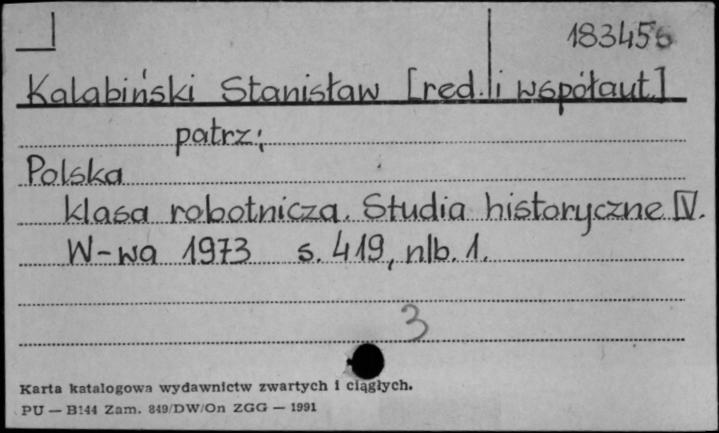 183456
Kalabiński Stanisław [red. i współaut.]
patrz:
Polska
klasa robotnicza. Studia historyczne IV.
W-wa 1973 s. 419, nlb. 1.
3
Karta katalogowa wydawnictw zwartych i ciągłych.
PU — B144 Zam. 849/DW/On ZGG — 1991